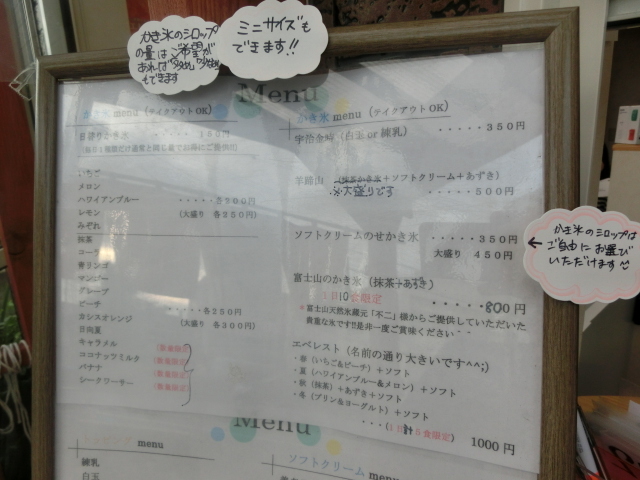 かき氷のシロップ
の量はご希望が
あれば
もできます
ミニサイズも
できます!!
Menu
かき氷 menu (テイクアウトOK)
日替りかき氷
いちご
メロン
ハワイアンブルー ・・・・・各200円
レモン (大盛り 各250円)
みぞれ
抹茶
コーラ
青リンゴ
マンゴー
グレープ
ピーチ ・・・・・各250円
カシスオレンジ (大盛り 各300円)
日向夏
キャラメル (数量限定)
ココナッツミルク (数量限定)
バナナ (数量限定)
シークワーサー (数量限定)
かき氷 menu (テイクアウトOK)
宇治金時 (白玉 or 練乳) ・・・・・350円
羊蹄山 (抹茶かき氷+ソフトクリーム+あずき)
※大盛りです ・・・・・500円
ソフトクリームのせかき氷 ・・・・・350円
大盛り 450円
富士山のかき氷 (抹茶+あずき)
1日10食限定 ・・・・・800円
*富士山天然氷蔵元「不二」様からご提供していただいた
貴重な氷です!!是非一度ご賞味ください
エベレスト (名前の通り大きいです^^;)
・春 (いちご&ピーチ) +ソフト
・夏 (ハワイアンブルー&メロン) +ソフト
・秋 (抹茶) +あずき+ソフト
・冬 (プリン&ヨーグルト) +ソフト
・・・(1日計5食限定) 1000円
←かき氷のシロップは
ご自由にお選び
いただけます
Menu
menu
練乳
白玉
ソフトクリーム menu